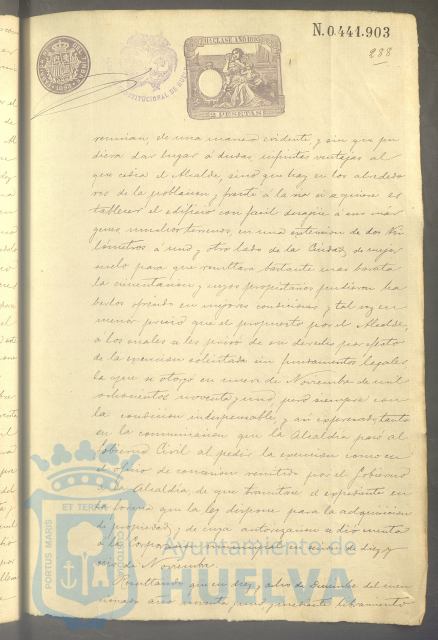 N. 0.441.903
238
CLASE AÑO 1892
2 PESETAS
reunian, de una manera evidente, y sin que pu
diera dar lugar á dudas, infinitas ventajas al
que cedia el Alcalde, sino que hay en los alrededo
res de la poblacion, y frente á la ria si se quiere es
tablecer el edificio con facil desagüe á sus mar
genes muchos terrenos, en una extension de dos Ki
lómetros á uno y otro lado de la Ciudad, de mejor
suelo para que resultara bastante mas barata
la cimentacion y cuyos propietarios pudieron ha
berlos ofrecido en mejores condiciones, y tal vez en
menor precio que el propuesto por el Alcalde,
á los cuales se les privó de su derecho por efecto
de la execcion solicitada sin fundamentos legales
la que se otorgó en nueve de Noviembre de mil
ochocientos noventa y uno pero siempre con
la condicion indispensable, y asi expresada tanto
en la comunicacion que la Alcaldia pasó al
Gobierno Civil al pedir la execcion como en
el oficio de concesion remitido por el Gobierno
Alcaldia, de que tramitase el expediente en
la forma que la ley dispone para la adquisicion
de propiedad, y de cuya autorizacion se dió cuenta
á la Corporacion de diez y
ocho de Noviembre.
Resultando que en diez y ocho de Diciembre del men
cionado año noventa y uno y mediante libramiento
ET TERRAE
PORTUS MARIS
CUSTODIA
Ayuntamiento de
HUELVA